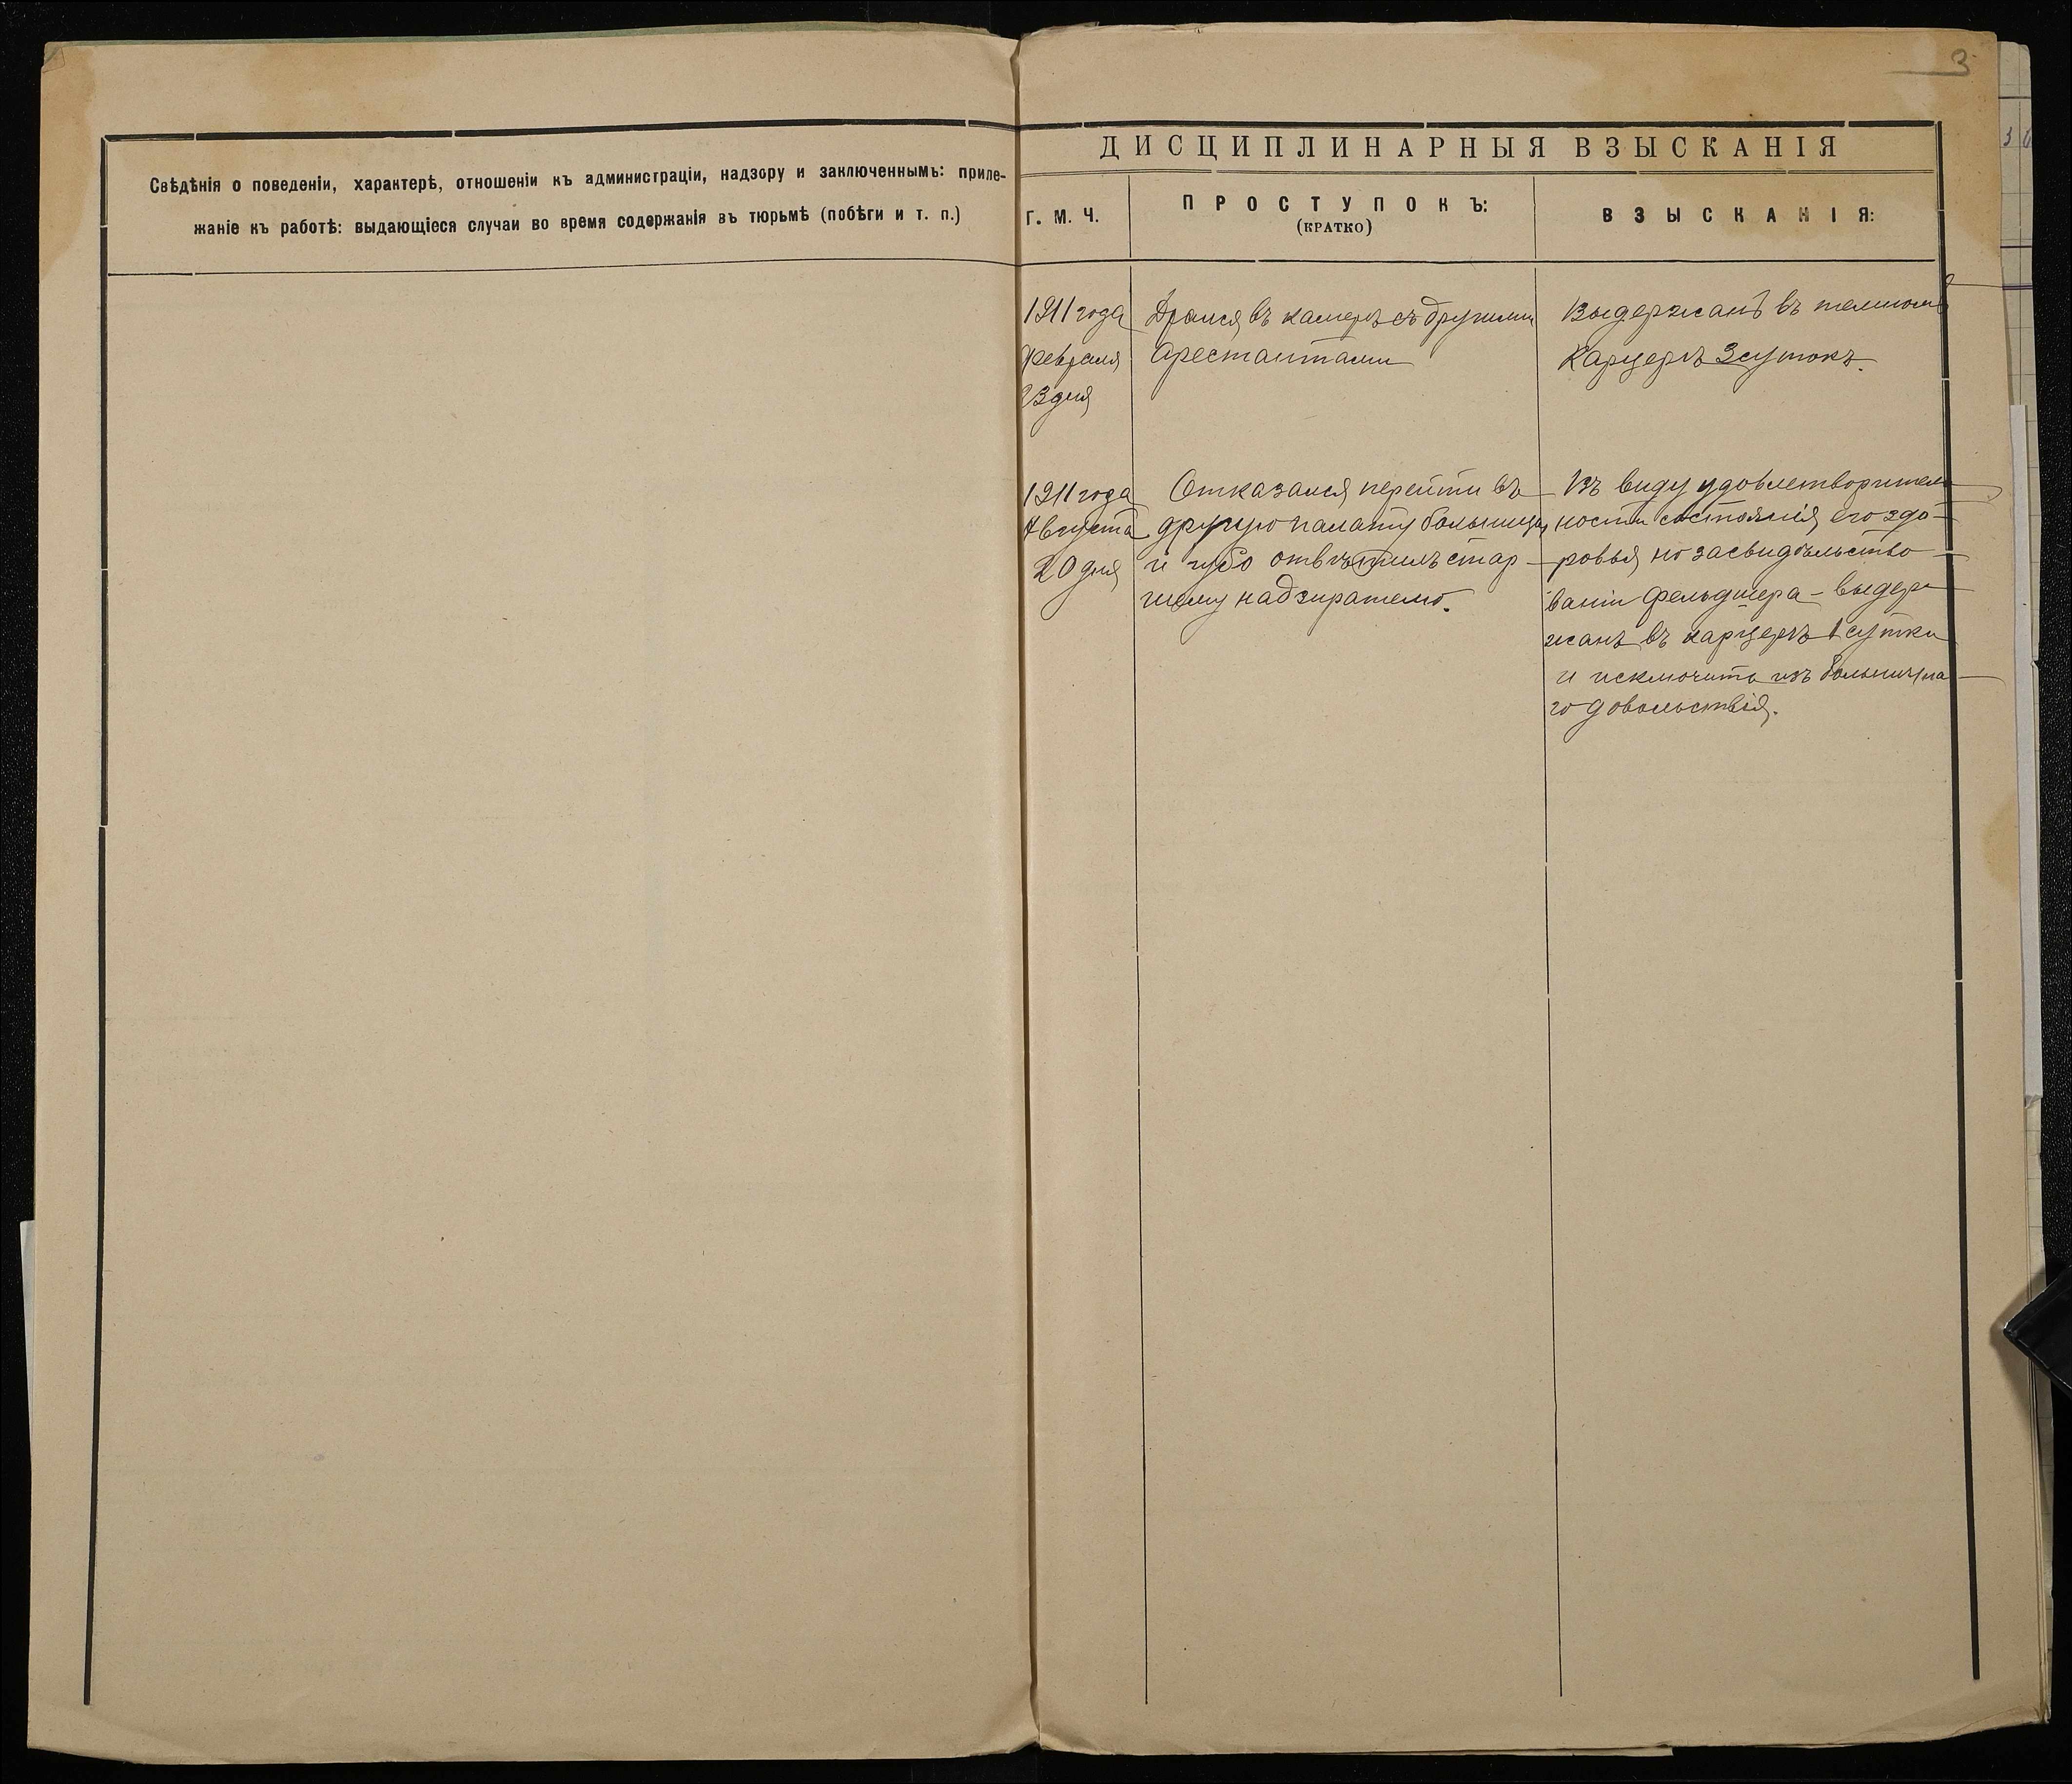 3
Свѣдѣнія о поведеніи, характерѣ, отношеніи къ администраціи, надзору и заключеннымъ: приле-
жаніе къ работѣ: выдающіеся случаи во время содержанія въ тюрьмѣ (побѣги и т. п.)
ДИСЦИПЛИНАРНЫЯ ВЗЫСКАНІЯ
Г. М. Ч.
ПРОСТУПОКЪ:
(КРАТКО)
ВЗЫСКАНІЯ:
1911 года
февраля
23 дня
Дрался въ камерѣ съ другими
арестантами
Выдержанъ въ темномъ
карцерѣ 3 сутокъ.
1911 года
Августа
20 дня
Отказался перейти въ
другую палату больницы
и грубо отвѣтилъ стар-
шему надзирателю.
Въ виду удовлетворитель-
ности состоянія его здо-
ровья, по засвидѣтельство-
ваніи фельдшера – выдер-
жанъ въ карцерѣ 1 сутки
и исключить изъ больнична-
го довольствія.